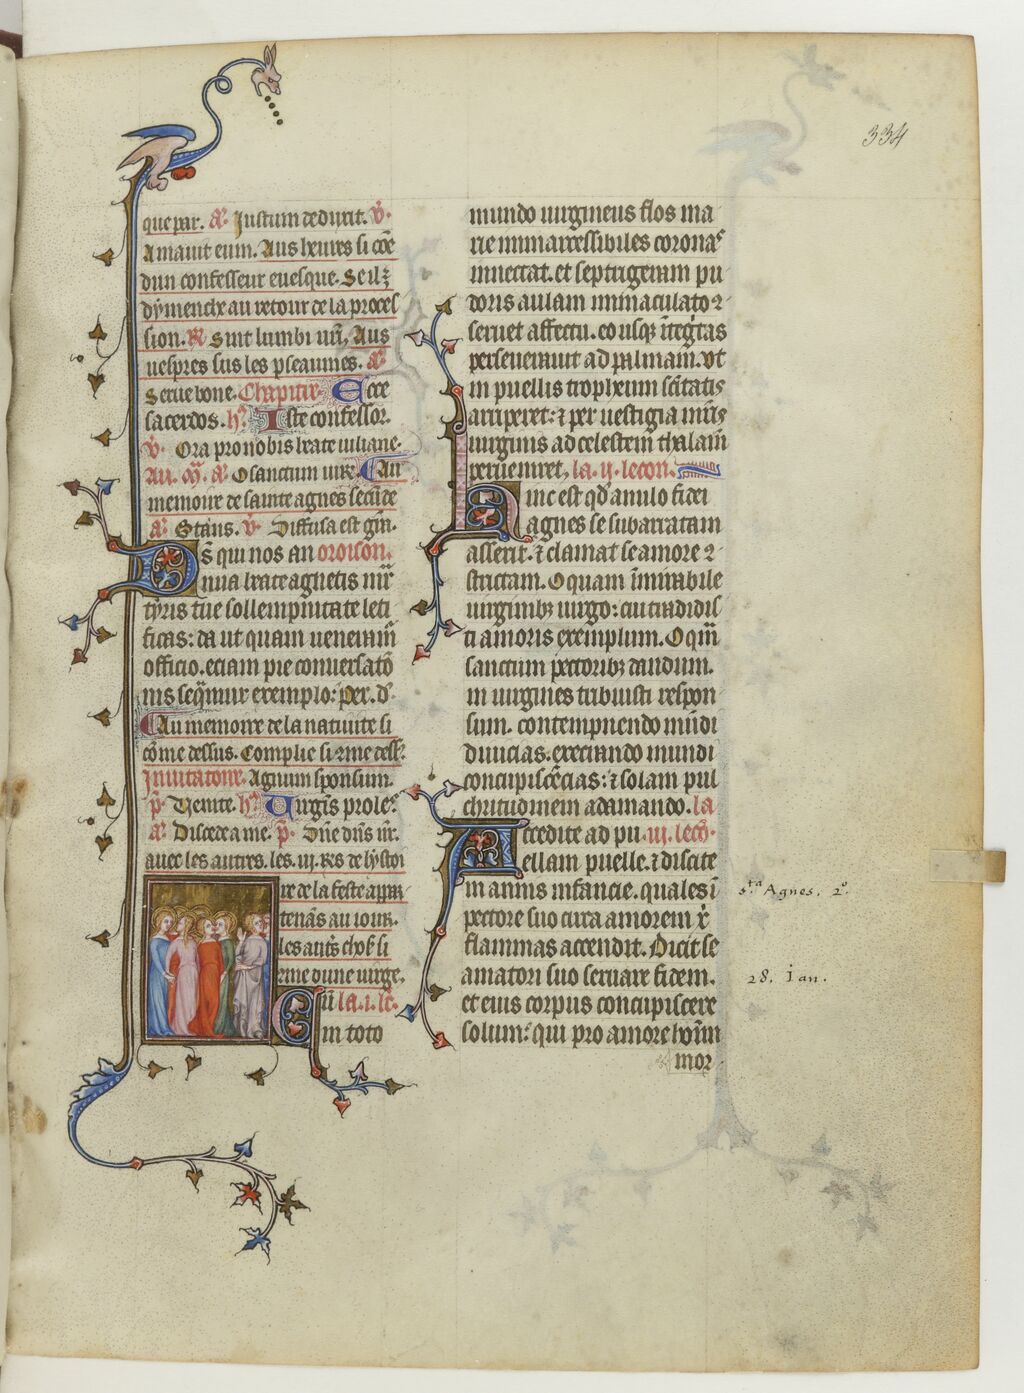 334
que par. a͛. Justum deduxit. v̓.
Amauit eum. Aus heures si cõe
dun confesseur euesque. Se il ẽ
dymenche au retour de la proces
sion. R͛. Sint lumbi ur̃i, Aus
uespres sus les pseaumes. a͛.
Serue bone. Chapitre. Ecce
sacerdos. h̓. Iste confessor.
v̓. Ora pro nobis beate iuliane.
Au. m̃. a͛. O sanctum uire. Au
memoire de sainte agnes secũde
a͛. Stans. v̓. Diffusa est grã.
Ds̃ qui nos an oroison.
nua beate agnetis mr̃
tyris tue sollempnitate leti
ficas: da ut quam ueneram̃
officio. etiam pie conuersatõ
nis seq̃mur exemplo: Per. d̓.
Au memoire de la natiuite si
cõme dessus. Complie si cõme dess̃.
Inuitatoire. Agnum sponsum.
p̓. Venite. h̓. Uirgĩs proles.
a͛. Discede a me. p̓. Dñe dñs nr̃.
auec les autres. les .iij. R͛s de lystoi
re de la feste appar
tenãs au iour.
les aut̃s chos̃ si
cõme dune uirge.
Cũ la .i. lc̃.
in toto
mundo uirgineus flos ma
rie inmarcessibiles coronas
innectat. et septrigeram pu
doris aulam inmaculato 2
seruet affectu. eo usqꝫ ĩteg̃tas
perseuerauit ad palmam. ut
in puellis tropheum sc̃itatis
arriperet: et per uestigia mr̃is
uirginis ad celestem thalam̃
perueniret, la .ij. lecon.
Hinc est qd̃ anulo fidei
agnes se subarratam
asserit. et clamat se amore 2
strictam. O quam ĩmirabile
uirginibꝫ uirgo: cui tradidis
ti amoris exemplum. O qm̃
sanctum pectoribꝫ dandum.
in uirgines tribuisti respon
sum. contempnendo mũdi
diuicias. execrando mundi
concupiscẽcias: et solam pul
chritudinem adamando. la
Accedite ad pu .iij. lecõ.
ellam puelle. et discite
in annis infancie. quales ĩ
pectore suo circa amorem xp̃i
flammas accendit. Dicit se
amatori suo seruare fidem.
et eius corpus concupiscere
solum: qui pro amore hoĩm
mor
sᵗᵃ Agnes. 2°.
28. Ian.